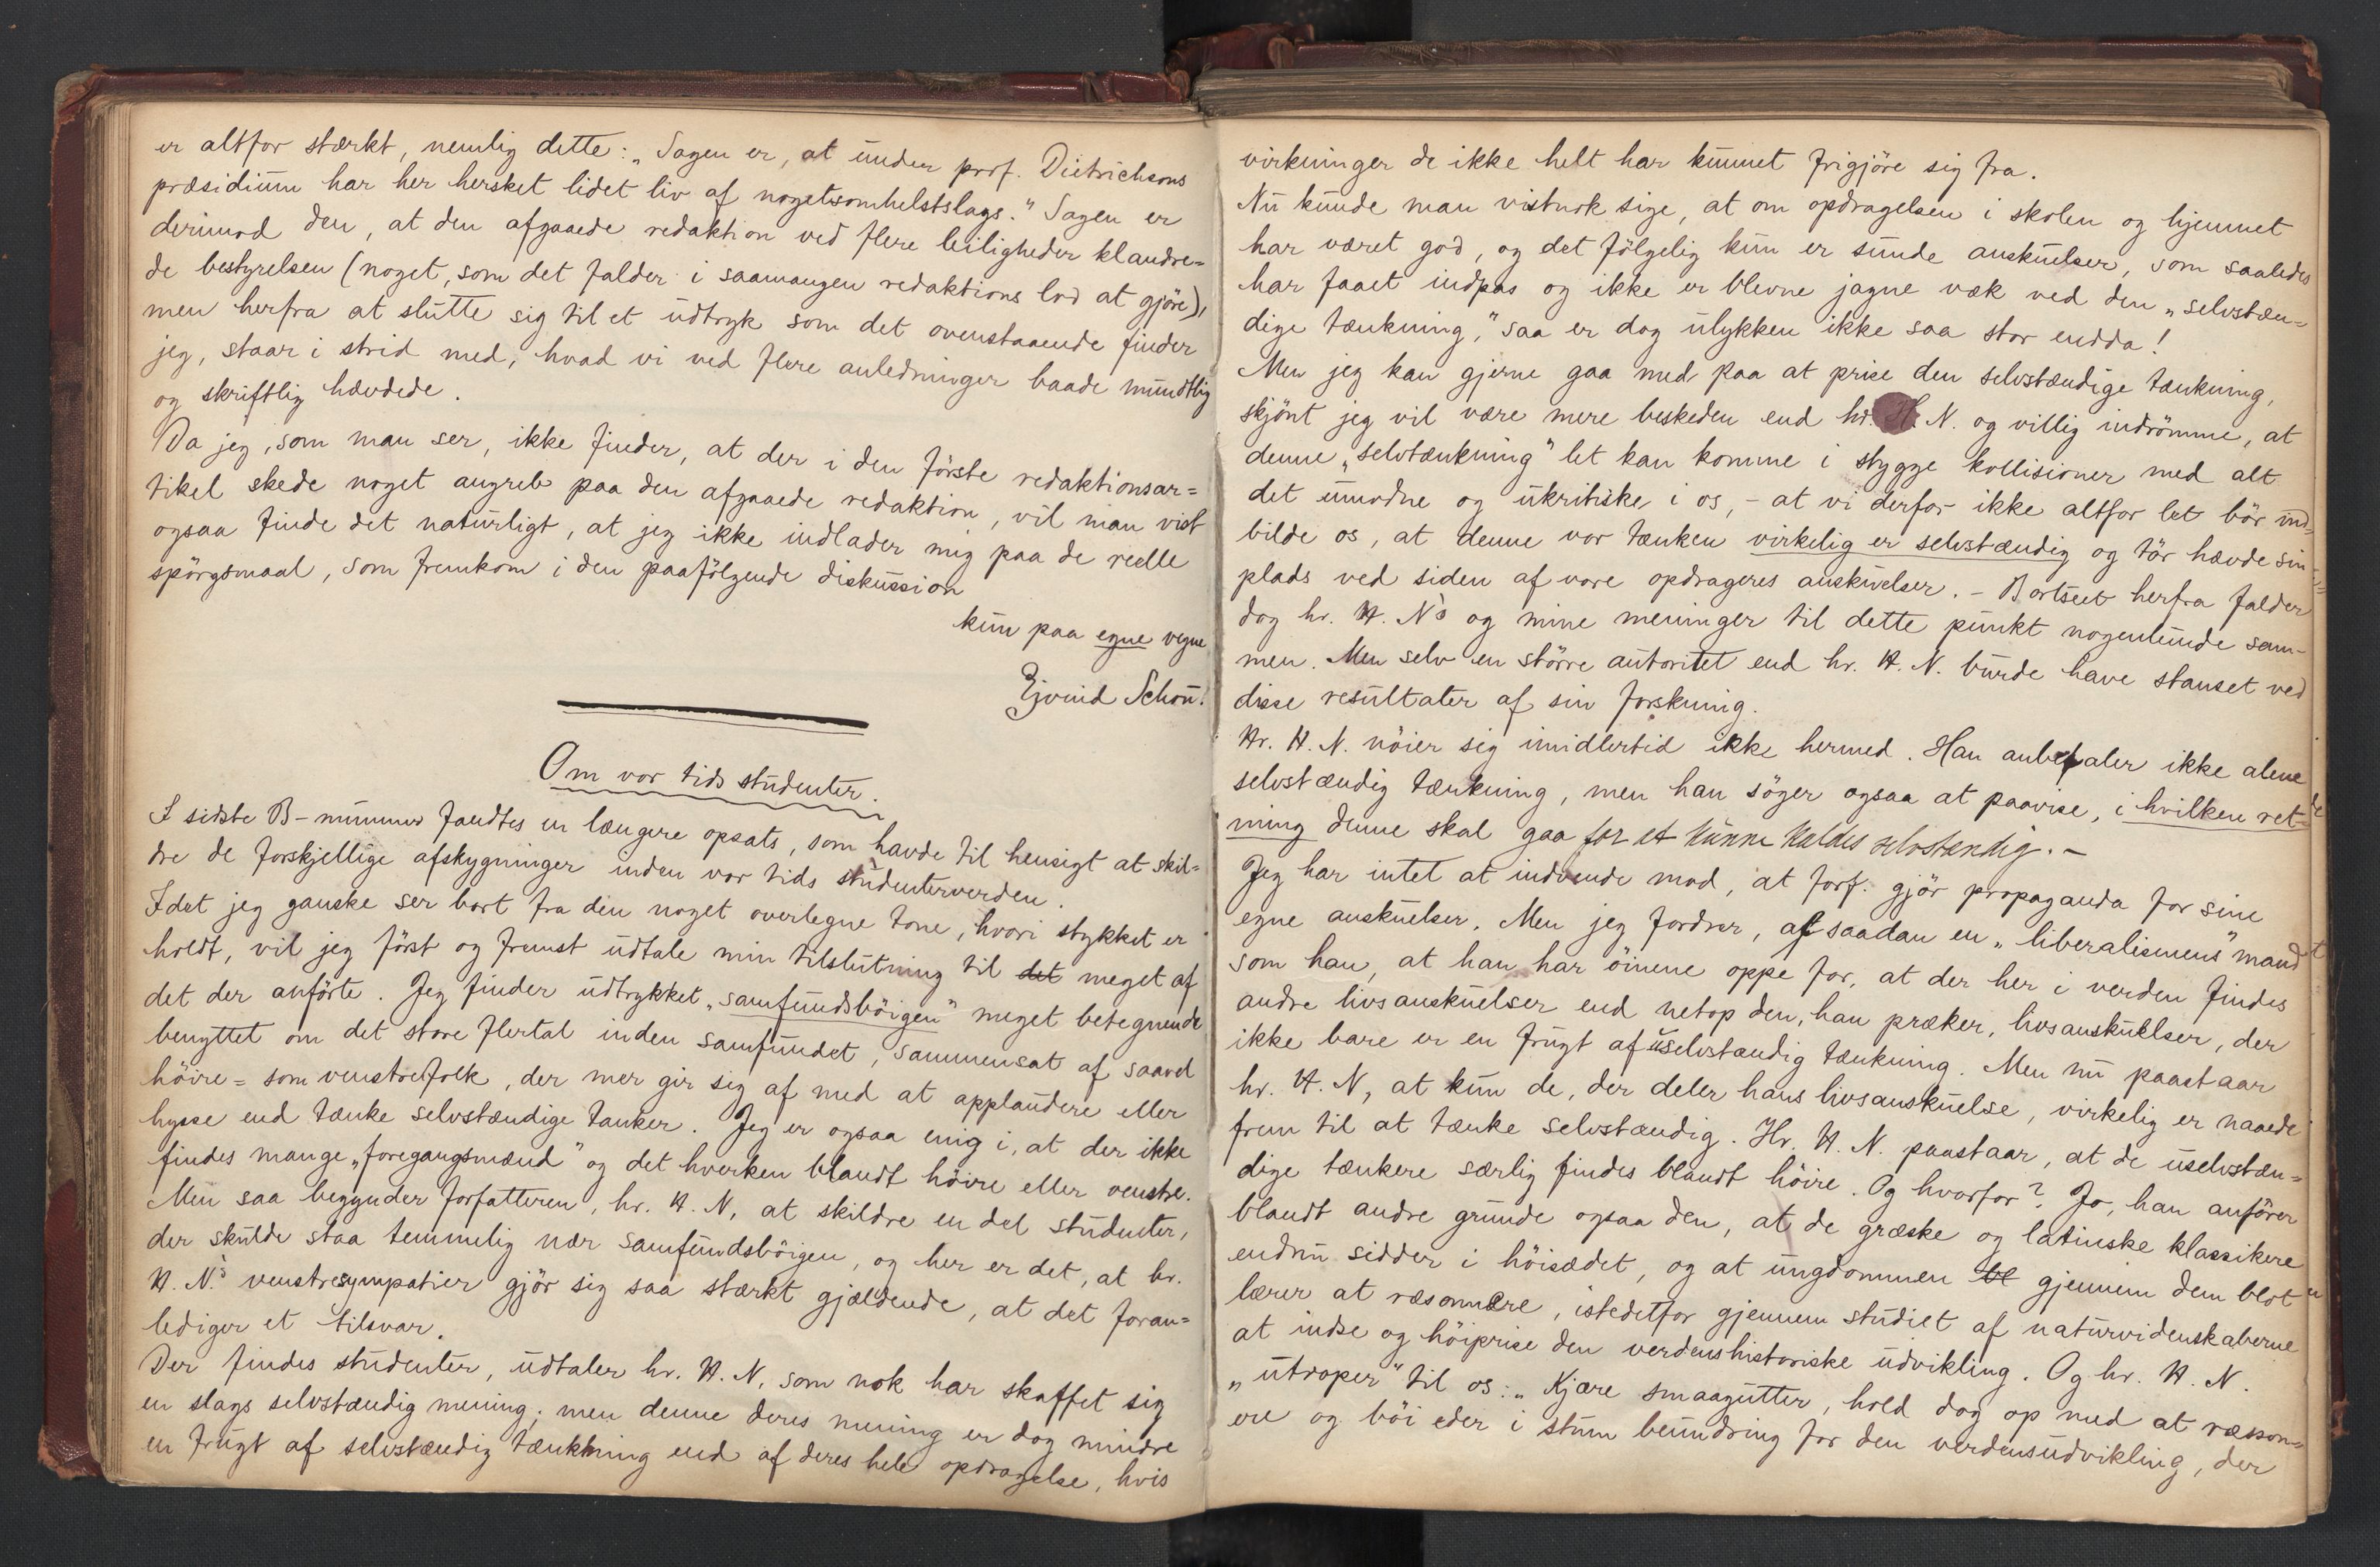 er altfor stærkt, nemlig dette: „Sagen er, at under prof. Dietrichsons
præsidium har her hersket lidet liv af nogetsomhelstslags.“ Sagen er
derimod den, at den afgaaede redaktion ved flere leiligheder klandre=
de bestyrelsen (noget, som det falder i saamangen redaktions lod at gjöre),
men herfra at slutte sig til et udtryk som det ovenstaaende finder
jeg, staar i strid med, hvad vi ved flere anledninger baade mundtlig
og skriftlig hævdede.
Da jeg, som man ser, ikke finder, at der i den förste redaktionsar=
tikel skede noget angreb paa den afgaaede redaktion, vil man vist
ogsaa finde det naturligt, at jeg ikke indlader mig paa de reelle
spörgsmaal, som fremkom i den paafölgende diskussion
kun paa egne vegne
Ejvind Schou.
Om vor tids studenter.
I sidste B-nummer fandtes en længere opsats, som havde til hensigt at skil=
dre de forskjellige afskygninger inden vor tids studenterverden.
Idet jeg ganske ser bort fra den noget overlegne tone, hvori stykket er
holdt, vil jeg först og fremst udtale min tilslutning til det meget af
det der anförte. Jeg finder udtrykket „samfundsböigen“ meget betegnende
benyttet om det store flertal inden samfundet, sammensat af saavel
höire= som venstrefolk, der mer gir sig af med at applaudere eller
hysse end tænke selvstændige tanker. Jeg er ogsaa enig i, at der ikke
findes mange „foregangsmænd“ og det hverken blandt höire eller venstre.
Men saa begynder forfatteren, hr. H. N, at skildre en del studenter,
der skulde staa temmelig nær samfundsböigen, og her er det, at hr.
H. N.s venstresympatier gjör sig saa stærkt gjældende, at det foran=
lediger et tilsvar.
Der findes studenter, udtaler hr. H. N, som nok har skaffet sig
en slags selvstændig mening; men denne deres mening er dog mindre
en frugt af selvstændig tænkning end af deres hele opdragelse, hvis
virkninger de ikke helt har kunnet frigjöre sig fra.
Nu kunde man vistnok sige, at om opdragelsen i skolen og hjemmet
har været god, og det fölgelig kun er sunde anskuelser, som saaledes
har faaet indpas og ikke er blevne jagne væk ved den „selvstæn=
dige tænkning,“ saa er dog ulykken ikke saa stor endda!
Men jeg kan gjerne gaa med paa at prise den selvstændige tænkning,
skjönt jeg vil være mere beskeden end hr. H. N. og villig indrömme, at
denne „selvtænkning“ let kan komme i stygge kollisioner med alt
det umodne og ukritiske i os, - at vi derfor ikke altfor let bör ind=
bilde os, at denne vor tænken virkelig er selvstændig og tör hævde sin
plads ved siden af vore opdrageres anskuelser. - Bortseet herfra falder
dog hr. H. N's og mine meninger til dette punkt nogenlunde sam-
men. Men selv en större autoritet end hr. H. N. burde have stanset ved
disse resultater af sin forskning.
Hr. H. N. nöier sig imidlertid ikke hermed. Han anbefaler ikke alene
selvstændig tænkning, men han söger ogsaa at paavise, i hvilken ret=
ning denne skal gaa for at kunne kaldes selvstændig. -
Jeg har intet at indvende mod, at forf. gjör propaganda for sine
egne anskuelser. Men jeg fordrer, af saadan en „liberalismens“ mand
som han, at han har öinene oppe for, at der her i verden findes
andre livsanskuelser end netop den, han præker, livsanskuelser, der
ikke bare er en frugt af uselvstændig tænkning. Men nu paastaar
hr. H. N, at kun de, der deler hans livsanskuelse, virkelig er naaede
frem til at tænke selvstændig. Hr. H. N. paastaar, at de uselvstæn=
dige tænkere særlig findes blandt höire. Og hvorfor? Jo, han anförer
blandt andre grunde ogsaa den, at de græske og latinske klassikere
endnu sidder i höisædet, og at ungdommen bl gjennem dem blot
lærer at ræsonnere, istedetfor gjennem studiet af naturvidenskaberne
at indse og höiprise den verdenshistoriske udvikling. Og hr. H. N.
„utroper“ til os: „Kjære smaagutter, hold dog op med at ræsson=
ere og böi eder i stum beundring for den verdensudvikling, der